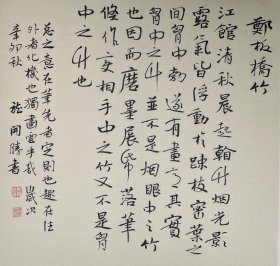 鄭板橋竹
江館清秋晨起看竹烟光影
露氣皆浮動於疎枝密葉之
間胷中勃勃遂有畫意其實
胷中之竹並不是烟眼中之竹
也因而磨墨展帋落筆
倏作変相手中之竹又不是胷
中之竹也
總之意在筆先者定則也趣在法
外者化機也獨畫云乎哉歲次
辛卯秋 書